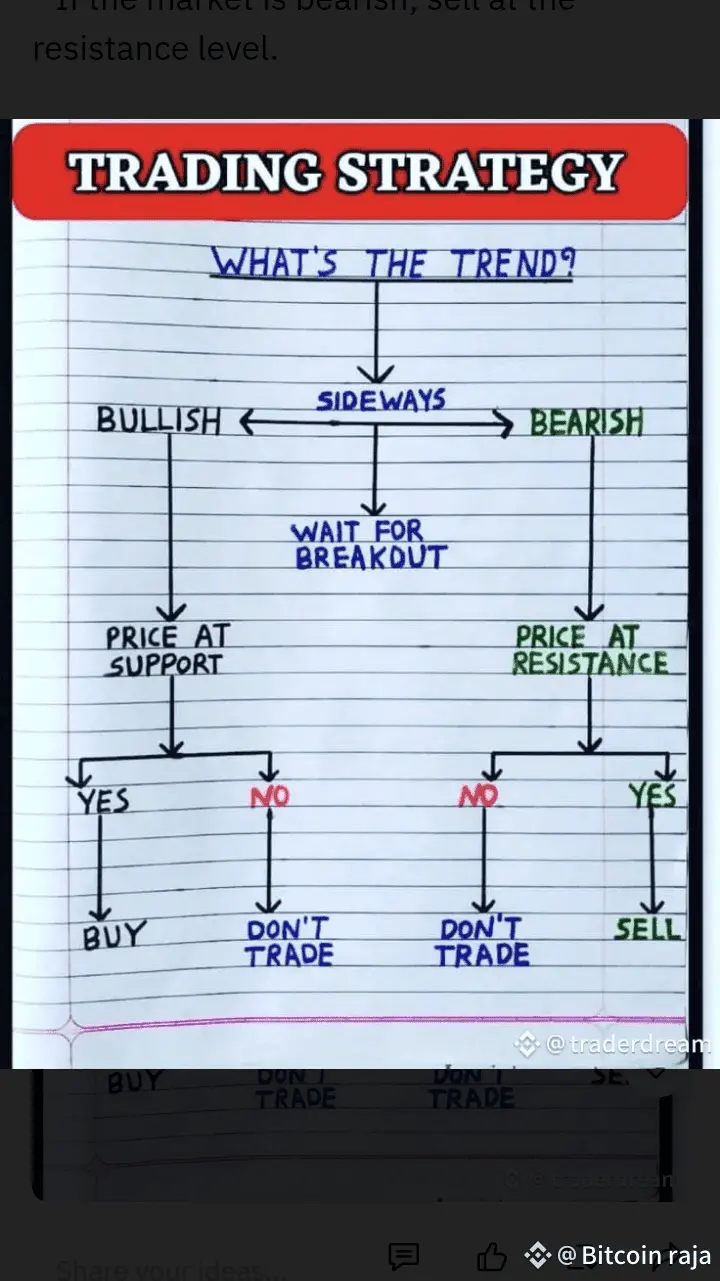 "If the market is bearish, sell at the
resistance level.
TRADING STRATEGY
WHAT'S THE TREND?
SIDEWAYS
BULLISH
BEARISH
WAIT FOR
BREAKOUT
PRICE AT
SUPPORT
PRICE AT
RESISTANCE
YES
NO
NO
YES
BUY
DON'T
TRADE
DON'T
TRADE
SELL
@traderdream
BUY
DON'T
TRADE
DON'T
TRADE
SE
@traderdream
Share your ideas...
@Bitcoin raja